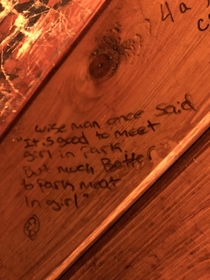 4 a
c
wise man once said
"It is good to meet
girl in park,
But much Better
to park meat
In girl"